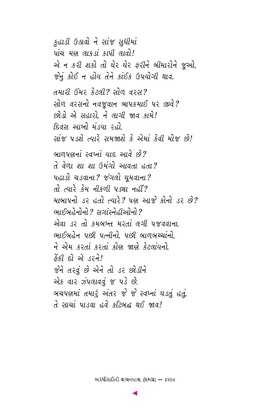 કુહાડી ઉઠાવો ને સાંજ સુધીમાં
પાંચ મણ લાકડાં કાપી લાવો!
એ ન કરી શકો તો ઘેર ઘેર ફરીને બીમારોને જુઓ,
જેનું કોઈ ન હોય તેને કાંઈક ઉપયોગી થાવ.
તમારી ઉંમર કેટલી? સોળ વરસ?
સોળ વરસનો નવજુવાન બાપકમાઈ પર જીવે?
છોડો એ સહારો, ને લાગી જાવ કામે!
દિવસ આખો મંડયા રહો.
સાંજ પડશે ત્યારે સમજાશે કે એમાં કેવી મોજ છે!
બાળપણનાં સ્વપ્નાં યાદ આવે છે?
તે વેળા શા શા ઉમંગો આવતા હતા?
પહાડો ચડવાના? જંગલો ઘૂમવાના?
તો ત્યારે કેમ નીકળી પડ્યા નહીં?
માબાપનો ડર હતો ત્યારે? પણ આજે કોનો ડર છે?
ભાઈબહેનોનો? સગાંસ્નેહીઓનો?
એવા ડર તો કમબખ્ત મરતાં લગી પજવવાના.
ભાઈબહેન પછી પત્નીનો. પછી બાળબચ્ચાંનો.
ને એમ કરતાં કરતાં કોણ જાણે કેટલાંયનો.
ફેંકી દો એ ડરને!
જેને તરવું છે એને તો ડર છોડીને
એક વાર ઝંપલાવવું જ પડે છે.
બચપણમાં તમારું અંતર જે જે સ્વપ્નાં ઘડતું હતું,
તે સાચાં પાડવા હવે કટિબદ્ધ થઈ જાવ!
અરધીસદીની વાચનયાત્રા
1954